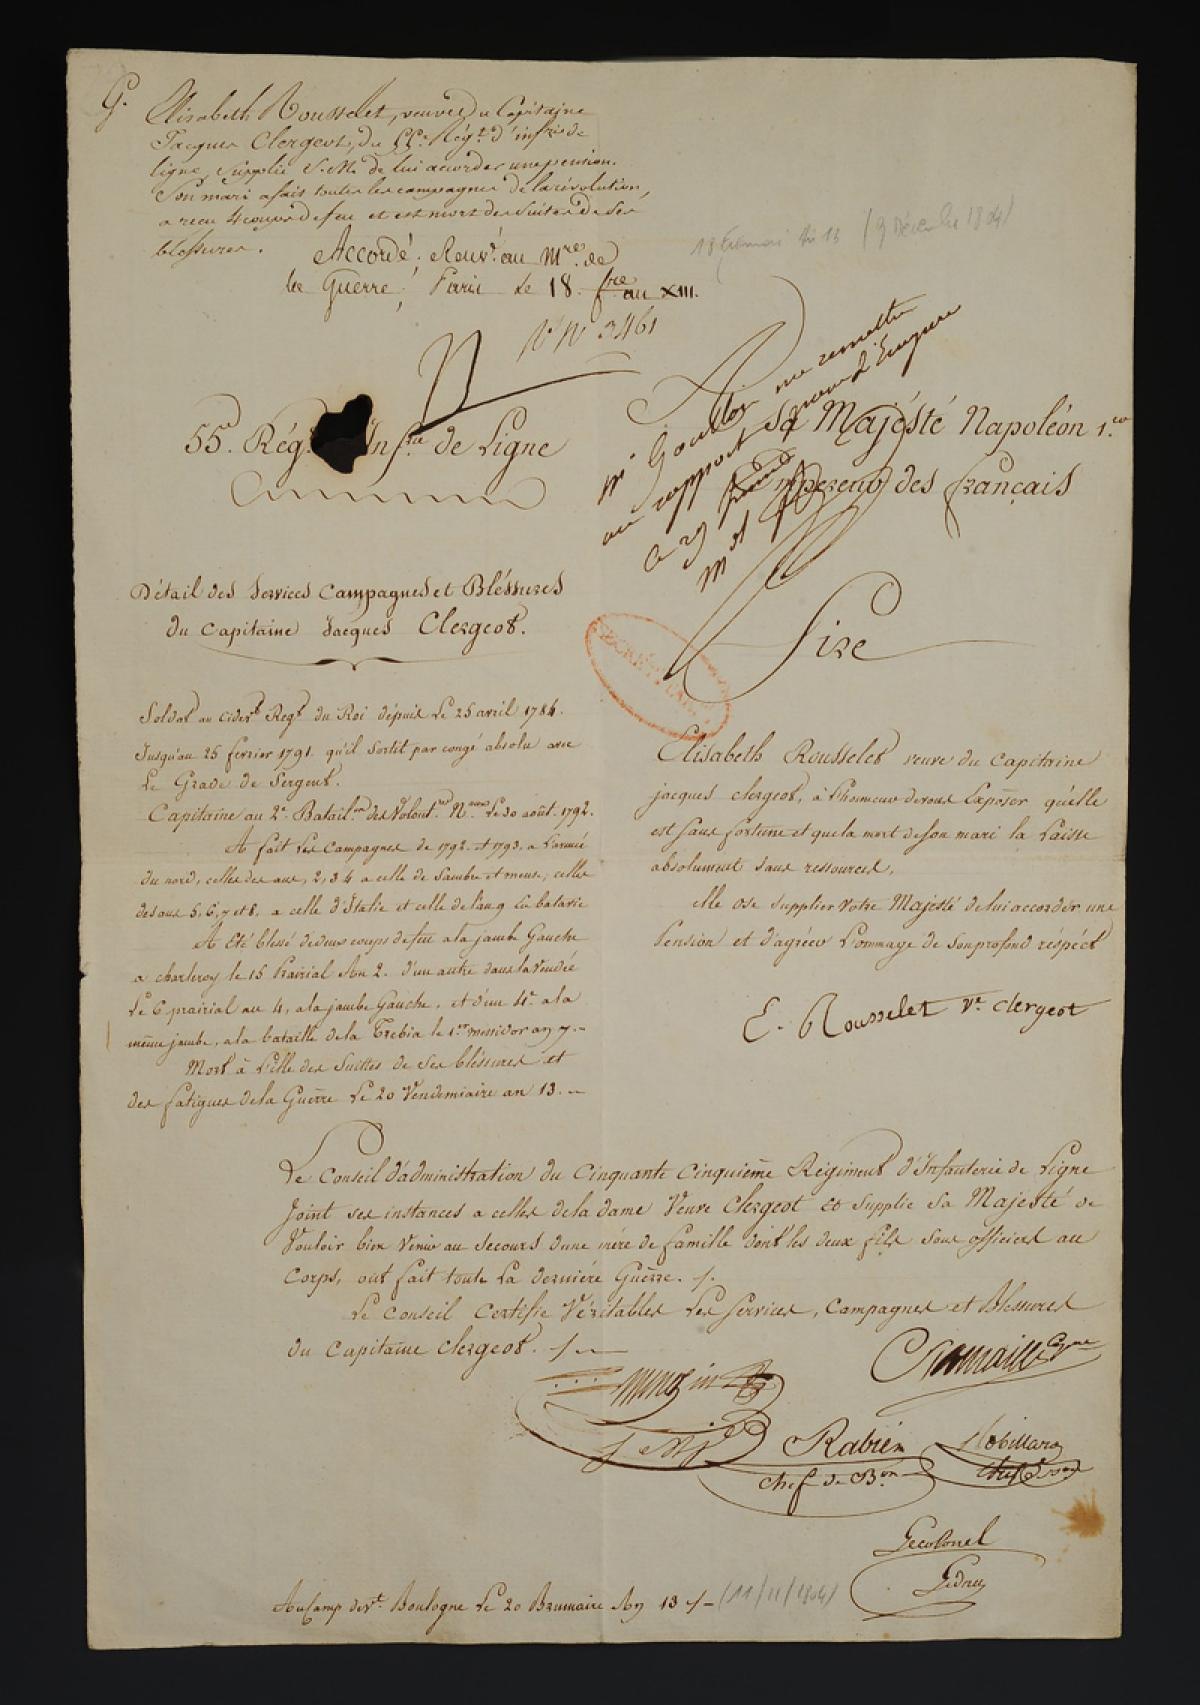 G.
Elisabeth Rousselet, veuve du Capitaine
Jacques Clergeot, du 55e. Régt. d'infrie de
ligne, supplie S. M. de lui accorder une pension.
Son mari a fait toutes les campagnes de la révolution,
a reçu 4 coups de feu et est mort des suites de ses
blessures.
Accordé. Renv. au Mre. de
la Guerre, Paris le 18. fre. an XIII.
18 frimaire An 13 (9 Décembre 1804)
N
No 3461
55e. Régt. Infrie de Ligne
A
Sa Majésté Napoléon 1.er
Empereur des français
Mr Goulot me remettre
un rapport pour l'Empereur
ce 29
Sire
Détail des Services Campagnes et Bléssures
du Capitaine Jacques Clergeot.
Soldat au cidevt. Regt. du Roi dépuis le 25 avril 1784.
Jusqu'au 25 février 1791. qu'il sortit par congé absolu avec
Le Grade de Sergent.
Capitaine au 2e. Batailon des Volontres Naux le 30 août. 1792.
A fait les Campagnes de 1792. et 1793. a L'armée
du nord, celles des ans, 2, 3 4 a celle de Sambre et meuse, celles
des ans 5, 6, 7 et 8, a celle d'Italie et celle de l'an 9 En batavie
A Eté blessé de deux coups de feu a la jambe Gauche
a charleroy le 15 Prairial An 2. d'un autre dans la Vendée
Le 6 prairial an 4, a la jambe Gauche, et d'un 4e a la
même jambe, a la bataille de la Trebia le 1er messidor an 7.
Mort à Lille des Suittes de Ses bléssures et
des fatigues de la Guerre Le 20 Vendemiaire an 13.
Elisabeth Rousselet veuve du Capitaine
jacques clergeot, à L'honneur de vous Exposer qu'elle
est sans fortune et que la mort de son mari la Laisse
absolument sans ressources,
elle ose supplier Votre Majesté de lui accorder une
Pension et d'agréer L'ommage de son profond réspéct
E. Rousselet Ve. clergeot
Le Conseil d'administration du Cinquante Cinquième Régiment d'Infanterie de Ligne
Joint ses instances a celles de la dame Veuve Clergeot et Supplie Sa Majesté de
Vouloir bien Venir au Secours d'une mére de famille dont les deux fils sous officiers au
Corps, ont fait toute La derniére Guèrre.
Le Conseil Certifie Véritables Les Services, Campagnes et Blessures
du Capitaine Clergeot.
Rabièn
Chef de Bon
Robillard
Le Colonel
Ledru
Au Camp devt. Boulogne Le 20 Brumaire An 13 (11/11/1804)